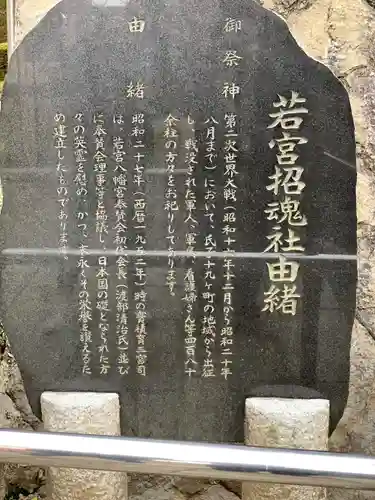 若宮招魂社由緒
御祭神
第二次世界大戦（昭和十六年十二月から昭和二十年
八月まで）において、氏子十九ヶ町の地域から出征
し、戦没された軍人、軍属、看護婦さん等四百八十
余柱の方々をお祀りしてあります。
由緒
昭和二十七年（西暦一九五二年）時の齊積育三宮司
は、若宮八幡宮奉賛会初代会長（渡部清治氏）並び
に奉賛会理事等と協議し、日本国の礎となられた方
々の英霊を慰め、かつ、末永くその栄誉を讃えるた
め建立したものであります。